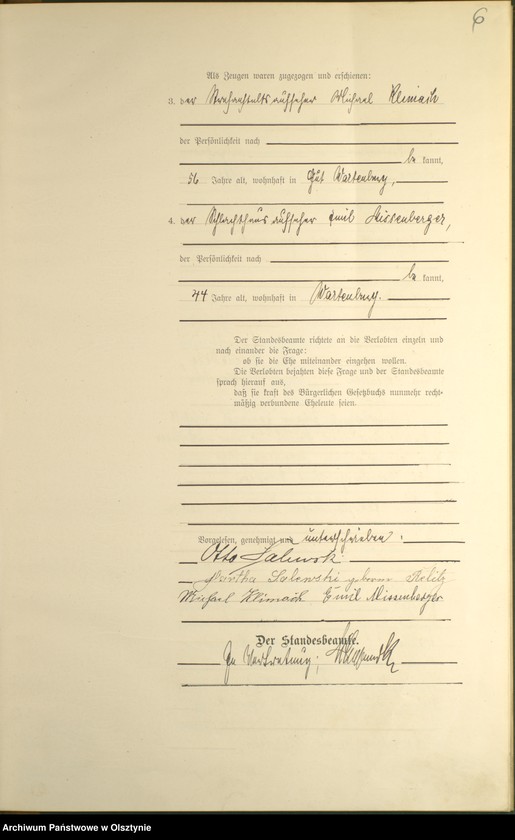 6
Als Zeugen waren zugezogen und erschienen:
3. der Strafanstaltsaufseher Michael Klimach
der Persönlichkeit nach
be kannt,
56 Jahre alt, wohnhaft in Gut Wartenburg,
4. der Schlachthausaufseher Emil Missenberger,
der Persönlichkeit nach
be kannt,
44 Jahre alt, wohnhaft in Wartenburg.
Der Standesbeamte richtete an die Verlobten einzeln und
nach einander die Frage:
ob sie die Ehe miteinander eingehen wollen.
Die Verlobten bejahten diese Frage und der Standesbeamte
sprach hierauf aus,
daß sie kraft des Bürgerlichen Gesetzbuchs nunmehr recht-
mäßig verbundene Eheleute seien.
Vorgelesen, genehmigt und unterschrieben:
Otto Salewski
Martha Salewski geborene
Michael Klimach Emil Missenberger
Der Standesbeamte.
In Vertretung:
Archiwum Państwowe w Olsztynie